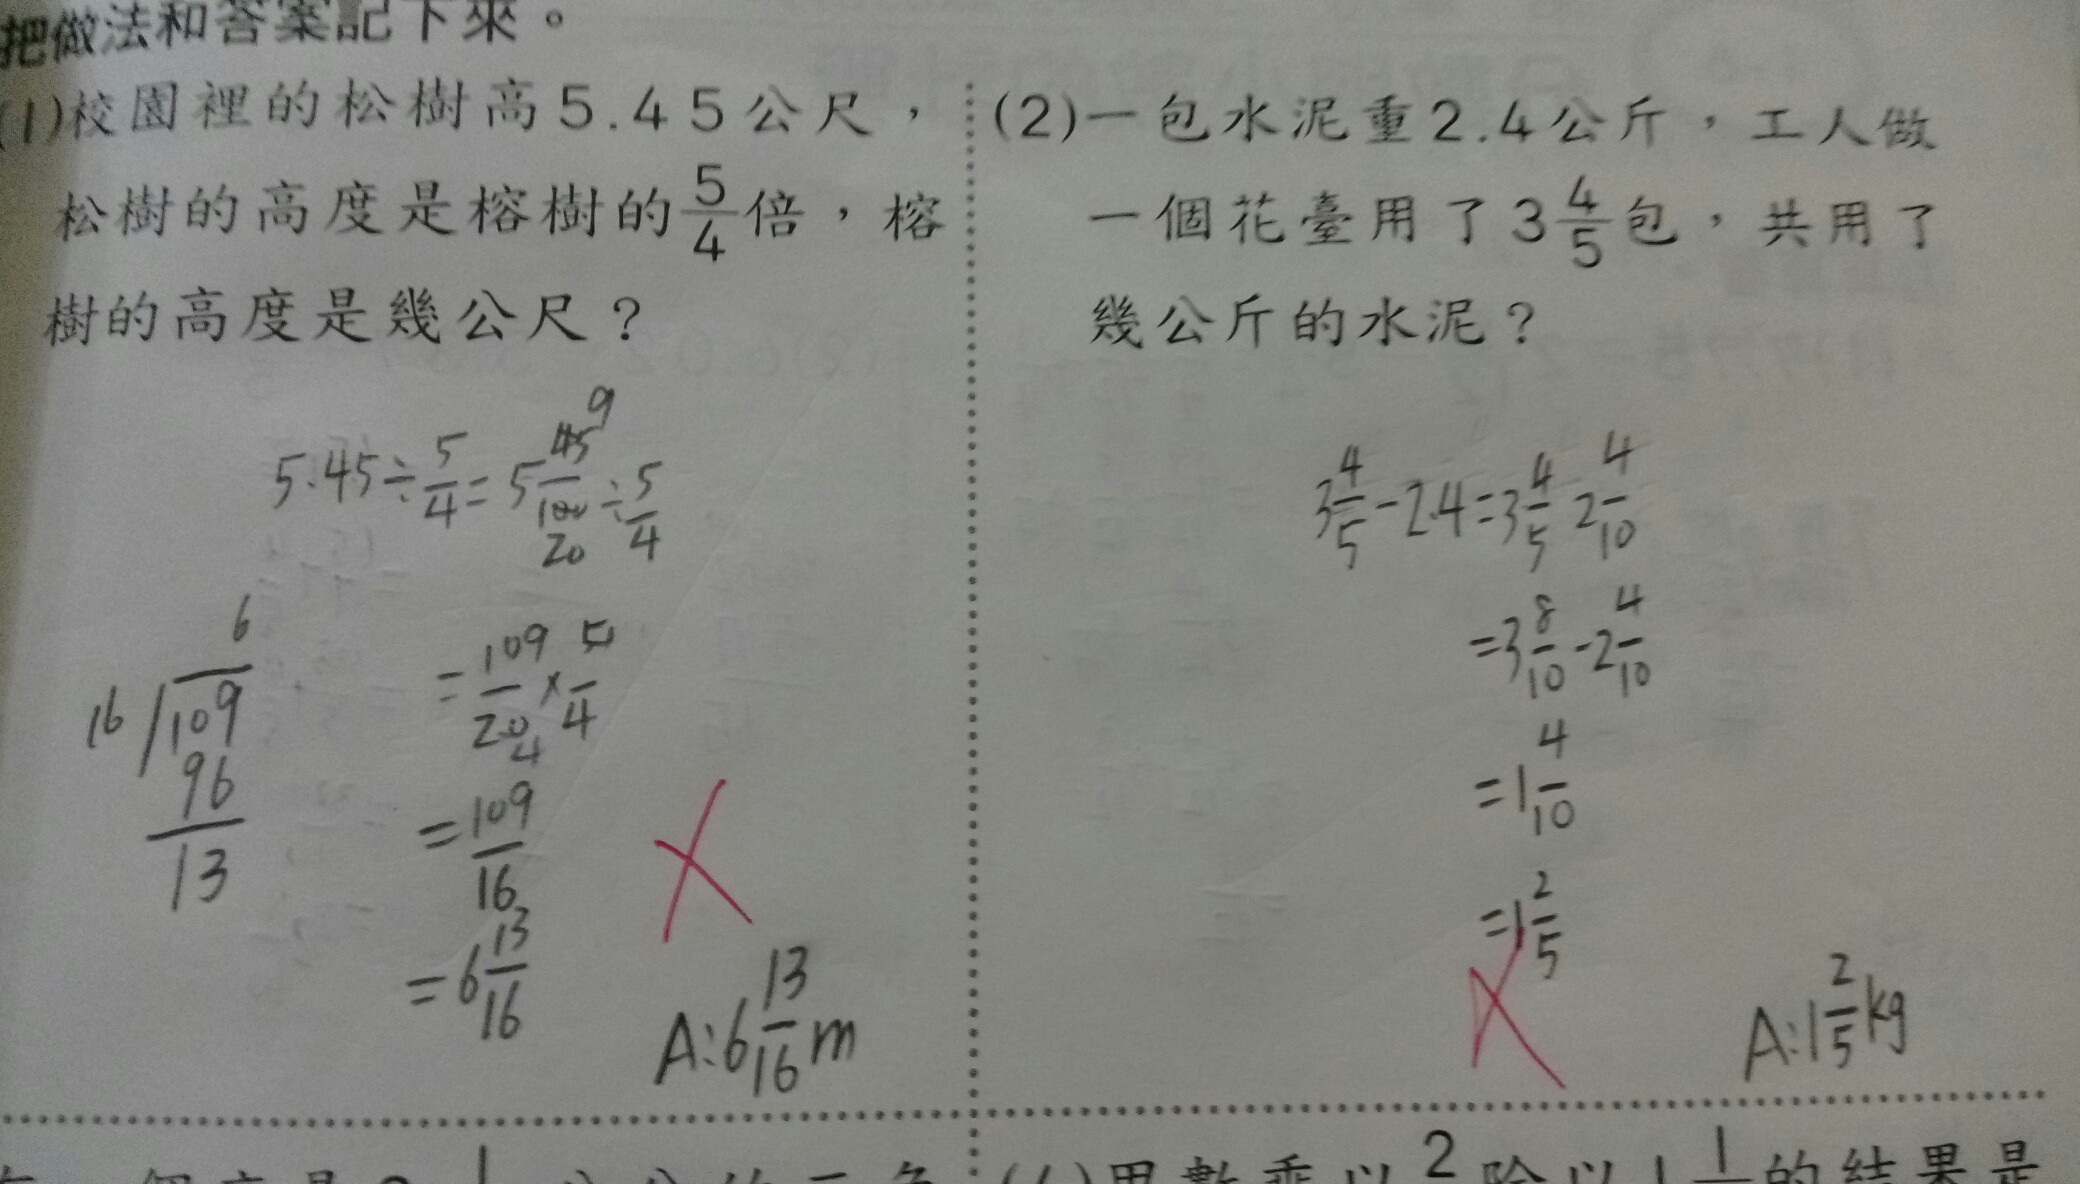 把做法和答案記下來。
(1)校園裡的松樹高5.45公尺，
松樹的高度是榕樹的5/4倍，榕
樹的高度是幾公尺？
5.45÷5/4=5 45/100÷5/4
9
20
=109/20×5/4
4
=109/16
=6 13/16
6
16 109
96
13
A:6 13/16 m
(2)一包水泥重2.4公斤，工人做
一個花臺用了3 4/5包，共用了
幾公斤的水泥？
3 4/5-2.4=3 4/5 2 4/10
=3 8/10-2 4/10
=1 4/10
=1 2/5
A:1 2/5 kg
2
除以1 1
的結果是